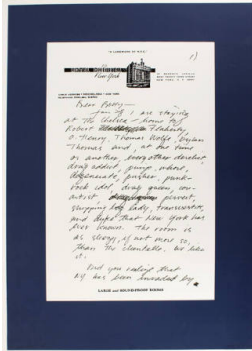 1)
New York
Dear Betty—
Jan & I are staying
at The Chelsea – home to
Robert Flaherty,
O'Henry, Thomas Wolfe, Dylan
Thomas and, at one time
or another, every other derelict,
drug addict, pimp, whore,
degenerate, pusher, punk-
rock idol, drag queen, con-
artist, pervert,
shopping bag lady, transvestite,
and dupe that New York has
ever known. The room is
as sleazy, if not more so,
than the clientele. We love
it.
Did you realize that
NY has been invaded by
LARGE and SOUND-PROOF ROOMS